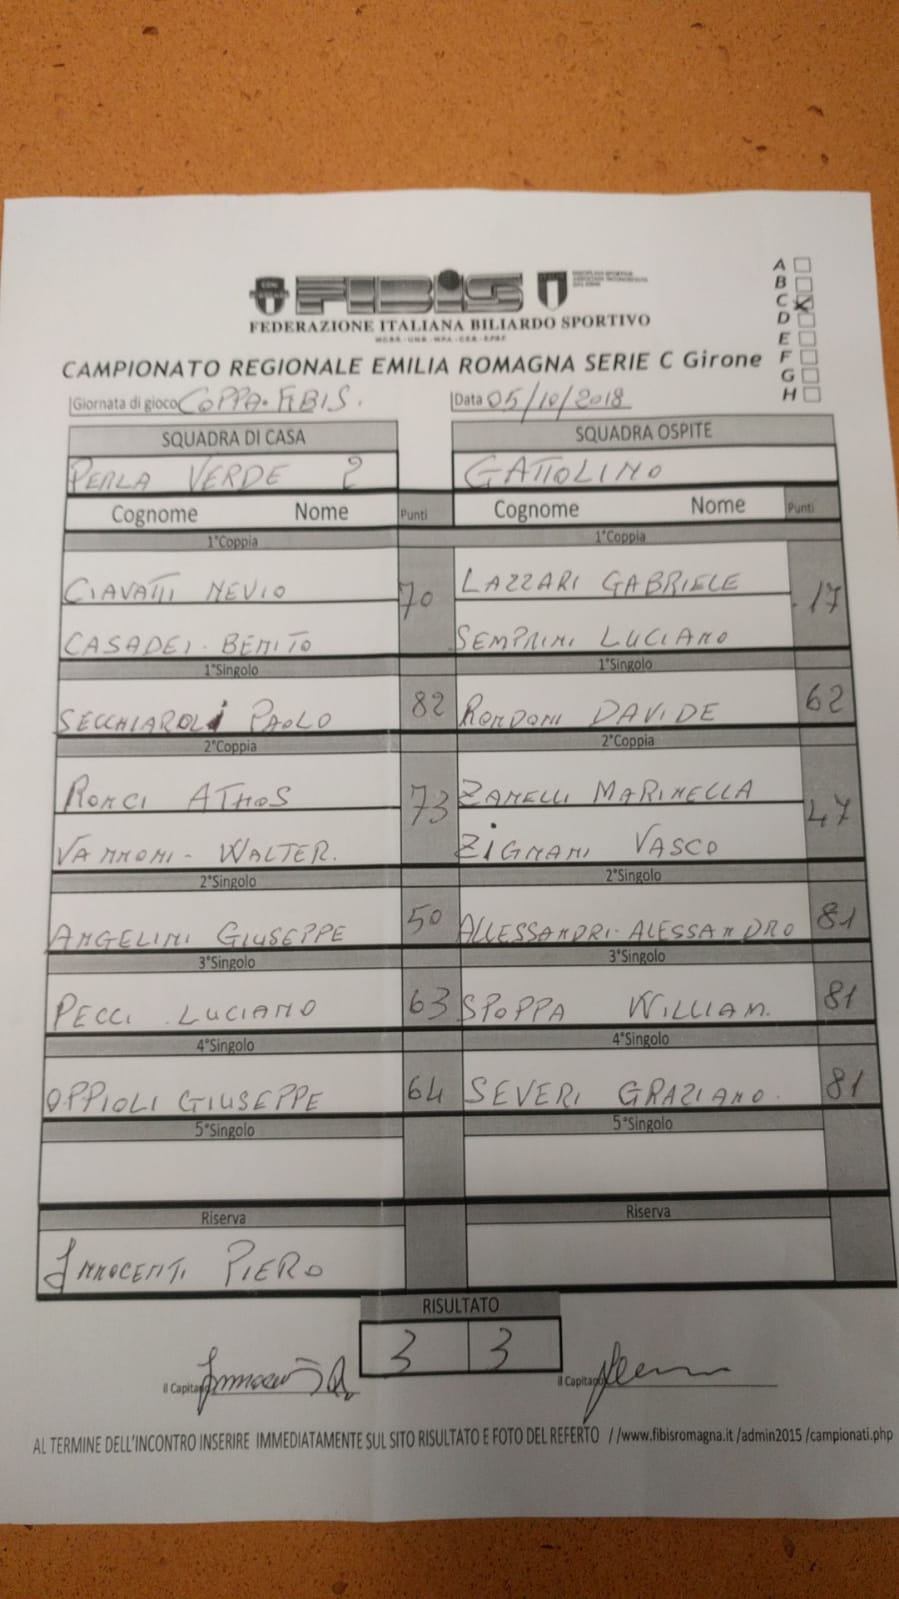 A
B
C
D
E
F
G
H
FIBIS
FEDERAZIONE ITALIANA BILIARDO SPORTIVO
CAMPIONATO REGIONALE EMILIA ROMAGNA SERIE C Girone
Giornata di gioco COPPA. FIBIS. Data 05/10/2018
SQUADRA DI CASA SQUADRA OSPITE
PERLA VERDE 2 GATTOLINO
Cognome Nome Punti Cognome Nome Punti
1°Coppia 1°Coppia
CIAVATTI NEVIO 70 LAZZARI GABRIELE 17
CASADEI. BENITO SEMPRINI LUCIANO
1°Singolo 1°Singolo
SECCHIAROLI PAOLO 82 RONDONI DAVIDE 62
2°Coppia 2°Coppia
RONCI ATHOS 73 ZANELLI MARINELLA 47
VANNONI - WALTER. ZIGNANI VASCO
2°Singolo 2°Singolo
ANGELINI GIUSEPPE 50 ALLESSANDRI. ALESSANDRO 81
3°Singolo 3°Singolo
PECCI LUCIANO 63 SPOPPA WILLIAM. 81
4°Singolo 4°Singolo
OPPIOLI GIUSEPPE 64 SEVERI GRAZIANO. 81
5°Singolo 5°Singolo
Riserva Riserva
INNOCENTI PIERO
RISULTATO
3 3
Il Capitano Il Capitano
AL TERMINE DELL'INCONTRO INSERIRE IMMEDIATAMENTE SUL SITO RISULTATO E FOTO DEL REFERTO //www.fibisromagna.it /admin2015 /campionati.php